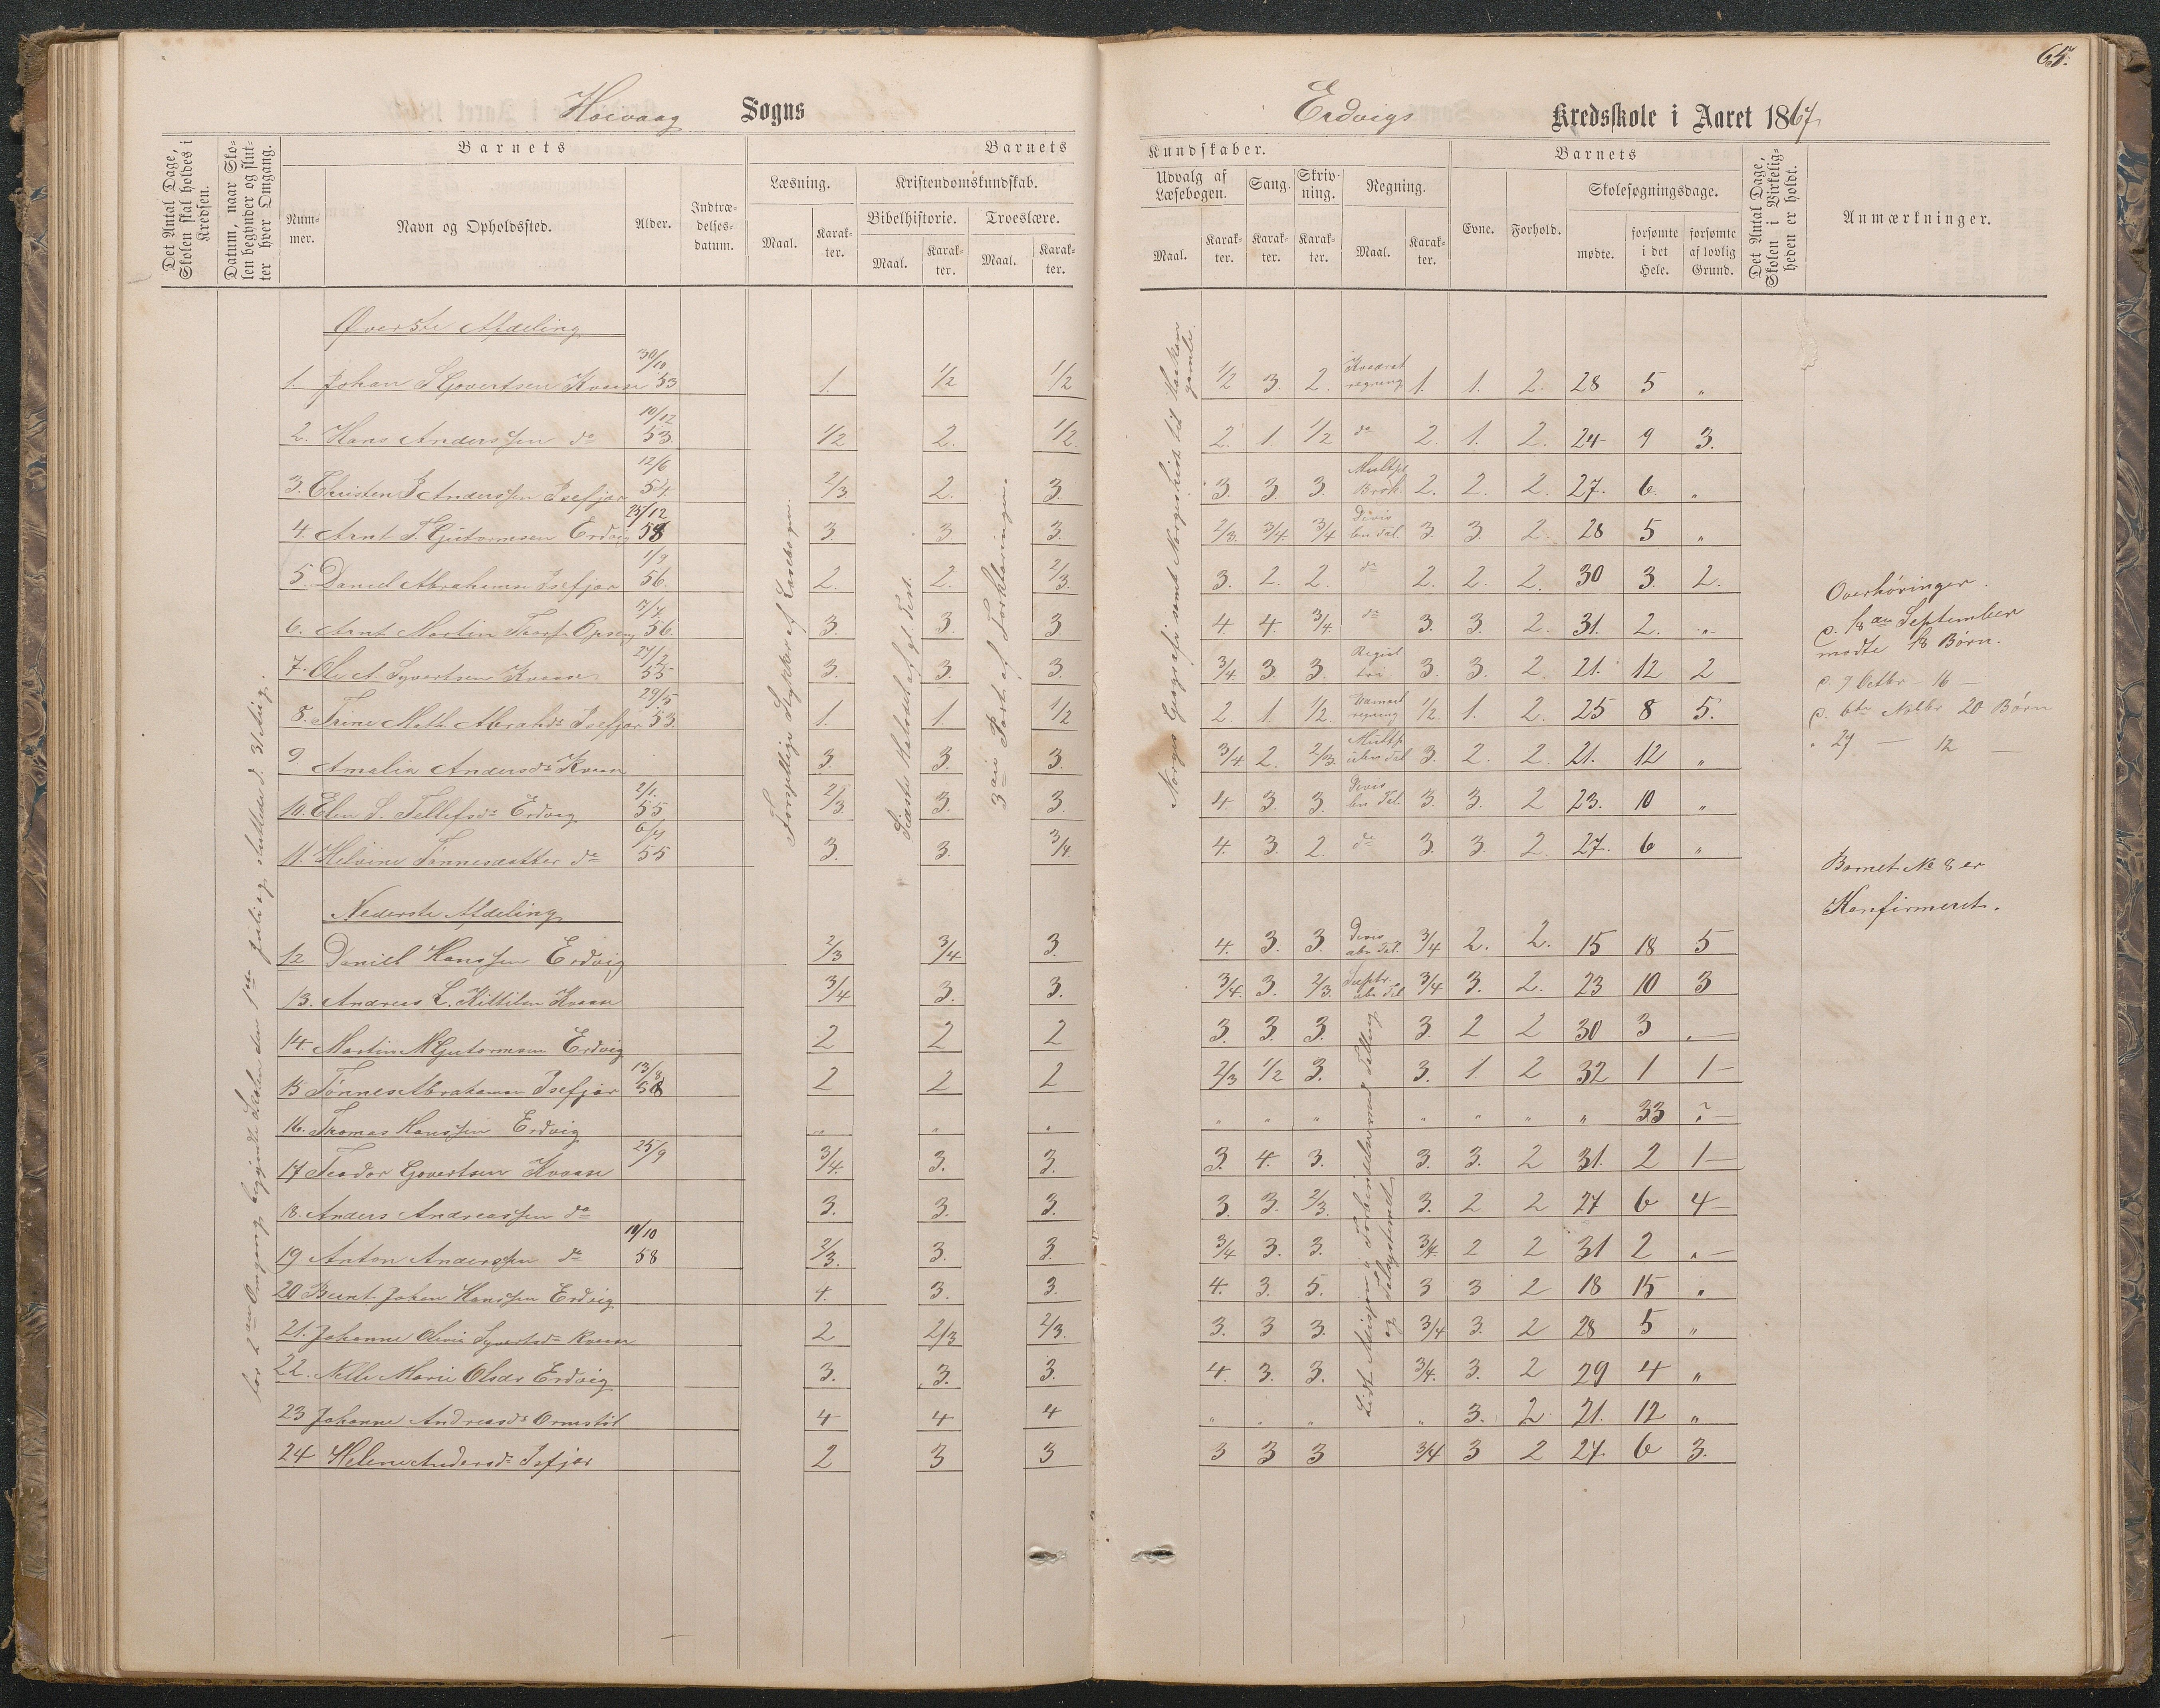 65.
Høivaag Sogns
Erdvigs Kredsskole i Aaret 1867
Det Antal Dage, Skolen skal holdes i Kredsen.
Datum, naar Skolen begynder og slutter hver Omgang.
Barnets
Nummer.
Navn og Opholdssted.
Alder.
Indtrædelsesdatum.
Barnets
Læsning.
Kristendomskundskab.
Bibelhistorie.
Troeslære.
Maal.
Karakter.
Maal.
Karakter.
Maal.
Karakter.
Kundskaber.
Udvalg af Læsebogen.
Sang.
Skrivning.
Regning.
Maal.
Karakter.
Karakter.
Karakter.
Maal.
Karakter.
Barnets
Evne.
Forhold.
Skolesøgningsdage.
mødte.
forsømte i det Hele.
forsømte af lovlig Grund.
Det Antal Dage, Skolen i Virkeligheden er holdt.
Anmærkninger.
for 2den Omgang begyndte Skolen den 1ste Juli og sluttede d. 31 Aug.
Forskjellige Stykker af Læsebogen.
3die Part af Forklaringen.
Øverste Afdeling
1. Johan S Govertsen Kvaase 30/10 53 1. 1/2 1/2 1/2 3. 2. Kvadrat regning 1. 1. 2. 28 5 "
2. Hans Anderssen do 10/12 53. 1/2 2. 1/2. 2. 1. 1/2 do 2. 1. 2. 24 9 3.
3. Christen Anderssen Isefjær 12/6 54. 2/3 2. 3. 3. 3. 3. Multpl Brøk. 2. 2. 2. 27. 6. "
4. Arnt T. Gutormsen Erdvig 25/12 58 3. 3. 3. 2/3. 3/4. 3/4 Divis ben Tal. 3. 3. 2. 28 5 "
5. Daniel Abrahams Isefjær 1/9 56. 2. 2. 2/3. 3. 2. 2. do 2. 2. 2. 30 3. 2.
6. Arnt Martin 56. 3. 3. 3 4. 4. 3/4. do 3. 3. 2. 31. 2. "
7. Ole A. Syvertsen Kvaase 27/2 55 3. 3. 3. 3/4. 3. 3. 3. 3. 2. 21. 12 2
8. Trine Math. Abrahds Isefjær 29/5 53. 1. 1. 1/2 2. 1. 1/2. regning 1/2. 1. 2. 25 8 5.
9. Amalia Andersdr Kvase 3 3. 3. 3/4. 2. 2/3. Multp uben Tal 3. 2. 2. 21. 12 "
10. Elen S. Tellefsdr Erdvig 2/1. 55 2/3 3. 3. 4. 3. 3. Divis ben Tal. 3. 3. 2 23. 10 "
11. Helvine Tønnesdatter do 6/4 55 3. 3. 3/4. 4. 3. 2. do 3. 3. 2. 27. 6 "
Nederste Afdeling
12 Daniel Hanssen Erdvig 2/3 3/4 3. 4. 3. 3. Divis ubn Tal. 3/4 2. 2. 15 18 5
13. Andreas L. Kittilsen Kvaase 3/4 3. 3. 3/4. 3. 2/3. ubn Tal 3/4 3. 2. 23 10 3
14. Martin M Gutormsen Erdvig 2 2 2 3. 3. 3. 3. 2 2 30 3 "
15 Tønnes Abrahamsen Isefjær 13/8 58 2 2 2 2/3 1/2 3. 3. 1. 2 32 1 1
16. Thomas Hanssen Erdvig " " " " " " " " " " 33 ?
17 Teodor Govertsen Kvaase 25/9 3/4. 3. 3. 3. 4. 3. 3. 3. 2 31. 2 1
18. Anders Andreassen do 3. 3. 3. 3. 3. 2/3. 3. 2 2 27 6 4
19 Anton Anderssen do 18/10 58 2/3. 3. 3. 3/4 3. 3. 3/4. 2 2 31 2 "
20 Bernt Johan Hanssen Erdvig 4. 3. 3. 4. 3. 5. 3 3 2 18 15 "
21. Johanne Olivia Syvertsdr Kvaase 2 2/3 2/3. 3. 3 3. 3/4 3. 2 28 5 "
22. Nelle Marie Olsdr Erdvig 3. 3. 3. 4. 3. 3. 3/4. 3. 2 29 4 "
23 Johanne Andreasdr Ormstöl 4 4 4 " " " " 3. 2 21. 12 "
24 Helene Andersdr Isfjær 2 3 3 3 3 3 3/4 3 2 27 6 3.
Overhøringer.
d. 18de September
mødte 18 Børn.
d. 9 Octbr – 16 –
d. 6te Novbr 20 Børn
" 27 — 12 —
Barnet No 8 er
Konfirmeret.